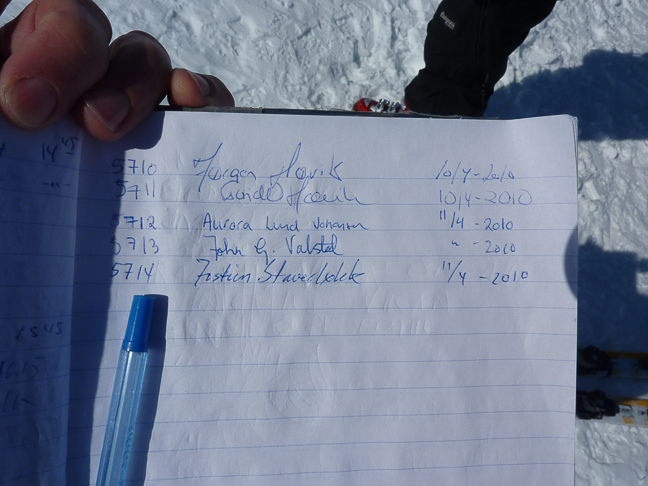 14 45
5710 Jørgen Høvik 10/4-2010
5711 Høvik 10/4-2010
5712 Aurora Lund Johansen 11/4-2010
5713 John G. Valstad " -2010
5714 11/4-2010
2545